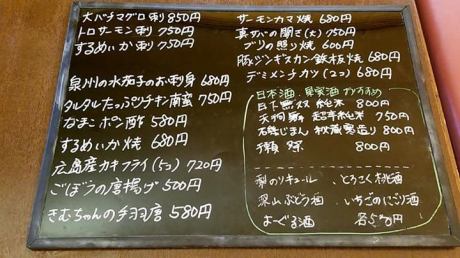 大バチマグロ刺 850円
トロサーモン刺 750円
するめいか刺 750円
泉州の水茄子のお刺身 680円
タルタルたっぷりチキン南蛮 750円
なまこポン酢 580円
するめいか焼 680円
広島産カキフライ(5コ) 720円
ごぼうの唐揚げ 500円
きむちゃんの手羽唐 580円
サーモンカマ焼 680円
真サバの開き(大) 750円
ブリの照り焼 600円
豚ジンギスカン鉄板焼 680円
デミメンチカツ(2コ) 680円
日本酒、果実酒 おすすめ
日下無双 純米 800円
天狗舞 超辛純米 750円
磯じまん 秋蔵寒造り 800円
獺祭 800円
梨のリキュール
とろこく桃酒
深山ぶどう酒
いちごのにごり酒
よーぐる酒
各580円